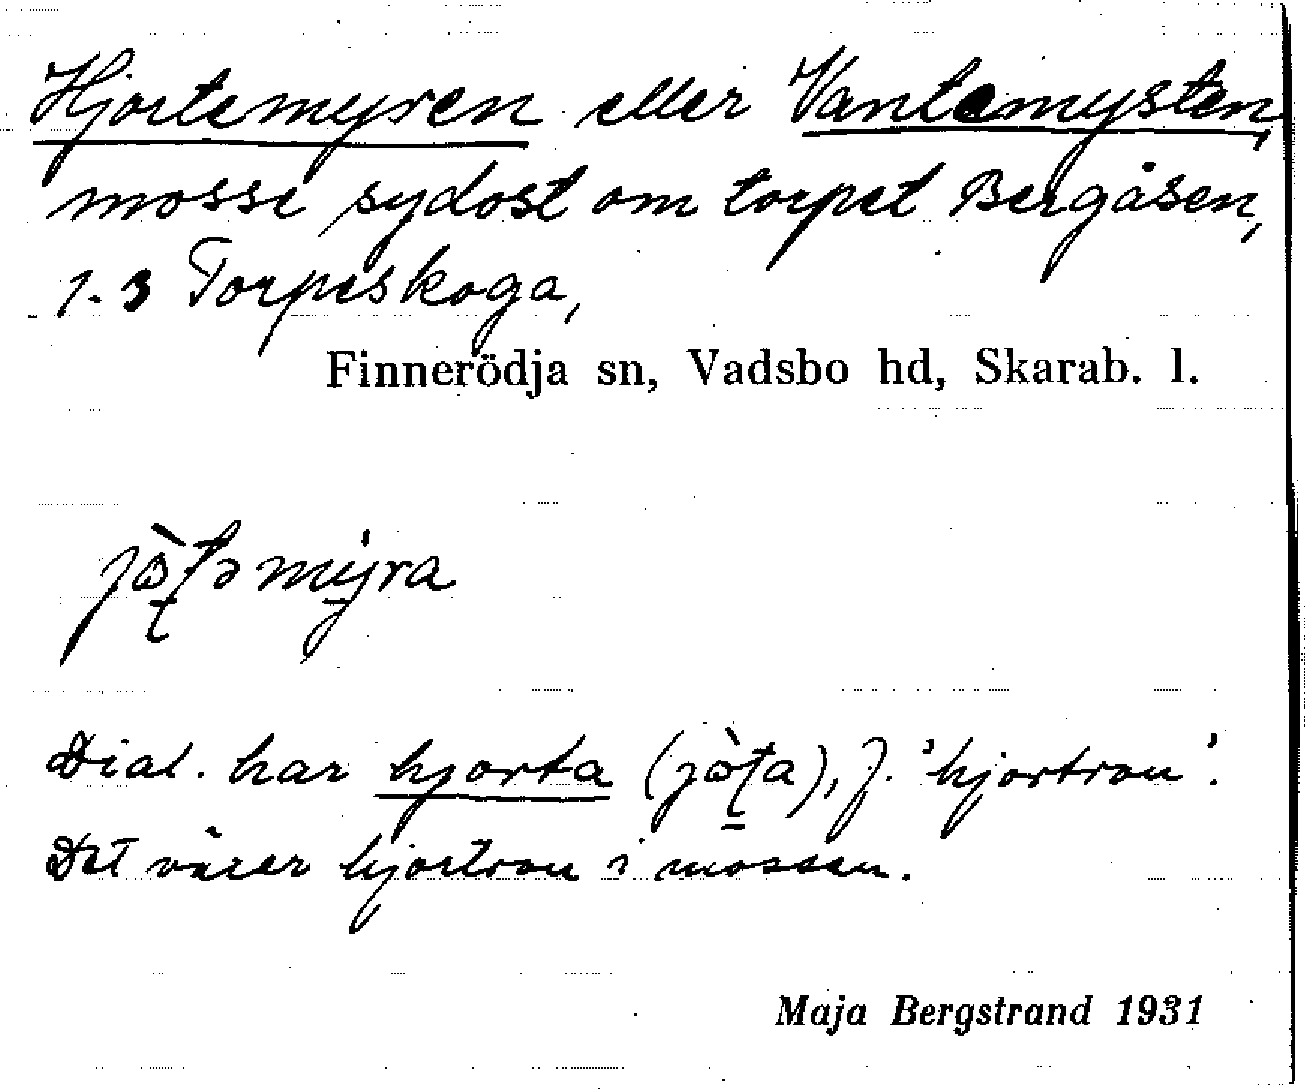 Hjortemyren eller Vantemysten,
mosse sydost om torpet Bergåsen,
1.3 Torpeskoga,
Finnerödja sn, Vadsbo hd, Skarab. l.
jò̱ʈəmy̱ra
Dial. har hjorta (jò̱ʈa), f. 'hjortron'.
Det växer hjortron i mossen.
Maja Bergstrand 1931